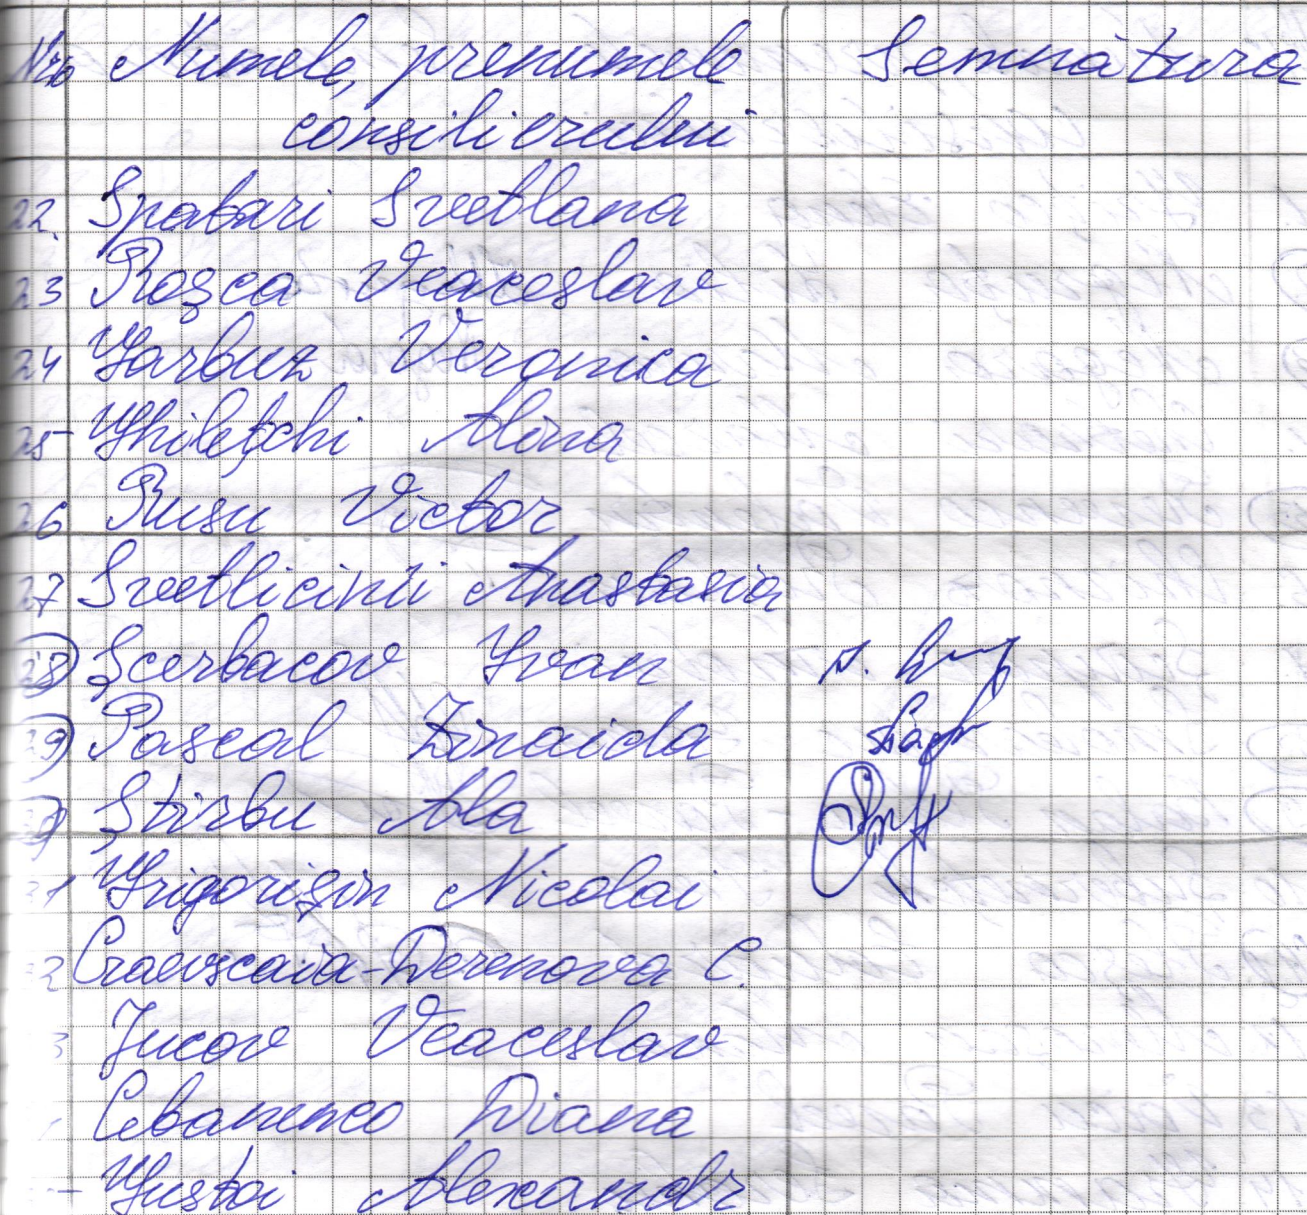 Numele, prenumele Semnătura
consilierului
22. Spatari Svetlana
23 Roșca Veaceslav
24 Garbuz Veronica
25 Ghilețchi Alona
26 Rusu Victor
27 Svetlicinîi Anastasia
28 Șcerbacov Ivan
29 Pascal Zinaida
30 Știrbu Ala
31 Grigorișin Nicolai
32 Craevscaia-Derenova C.
3 Jucov Veaceslav
Cebanenco Diana
Gustoi Alexandr